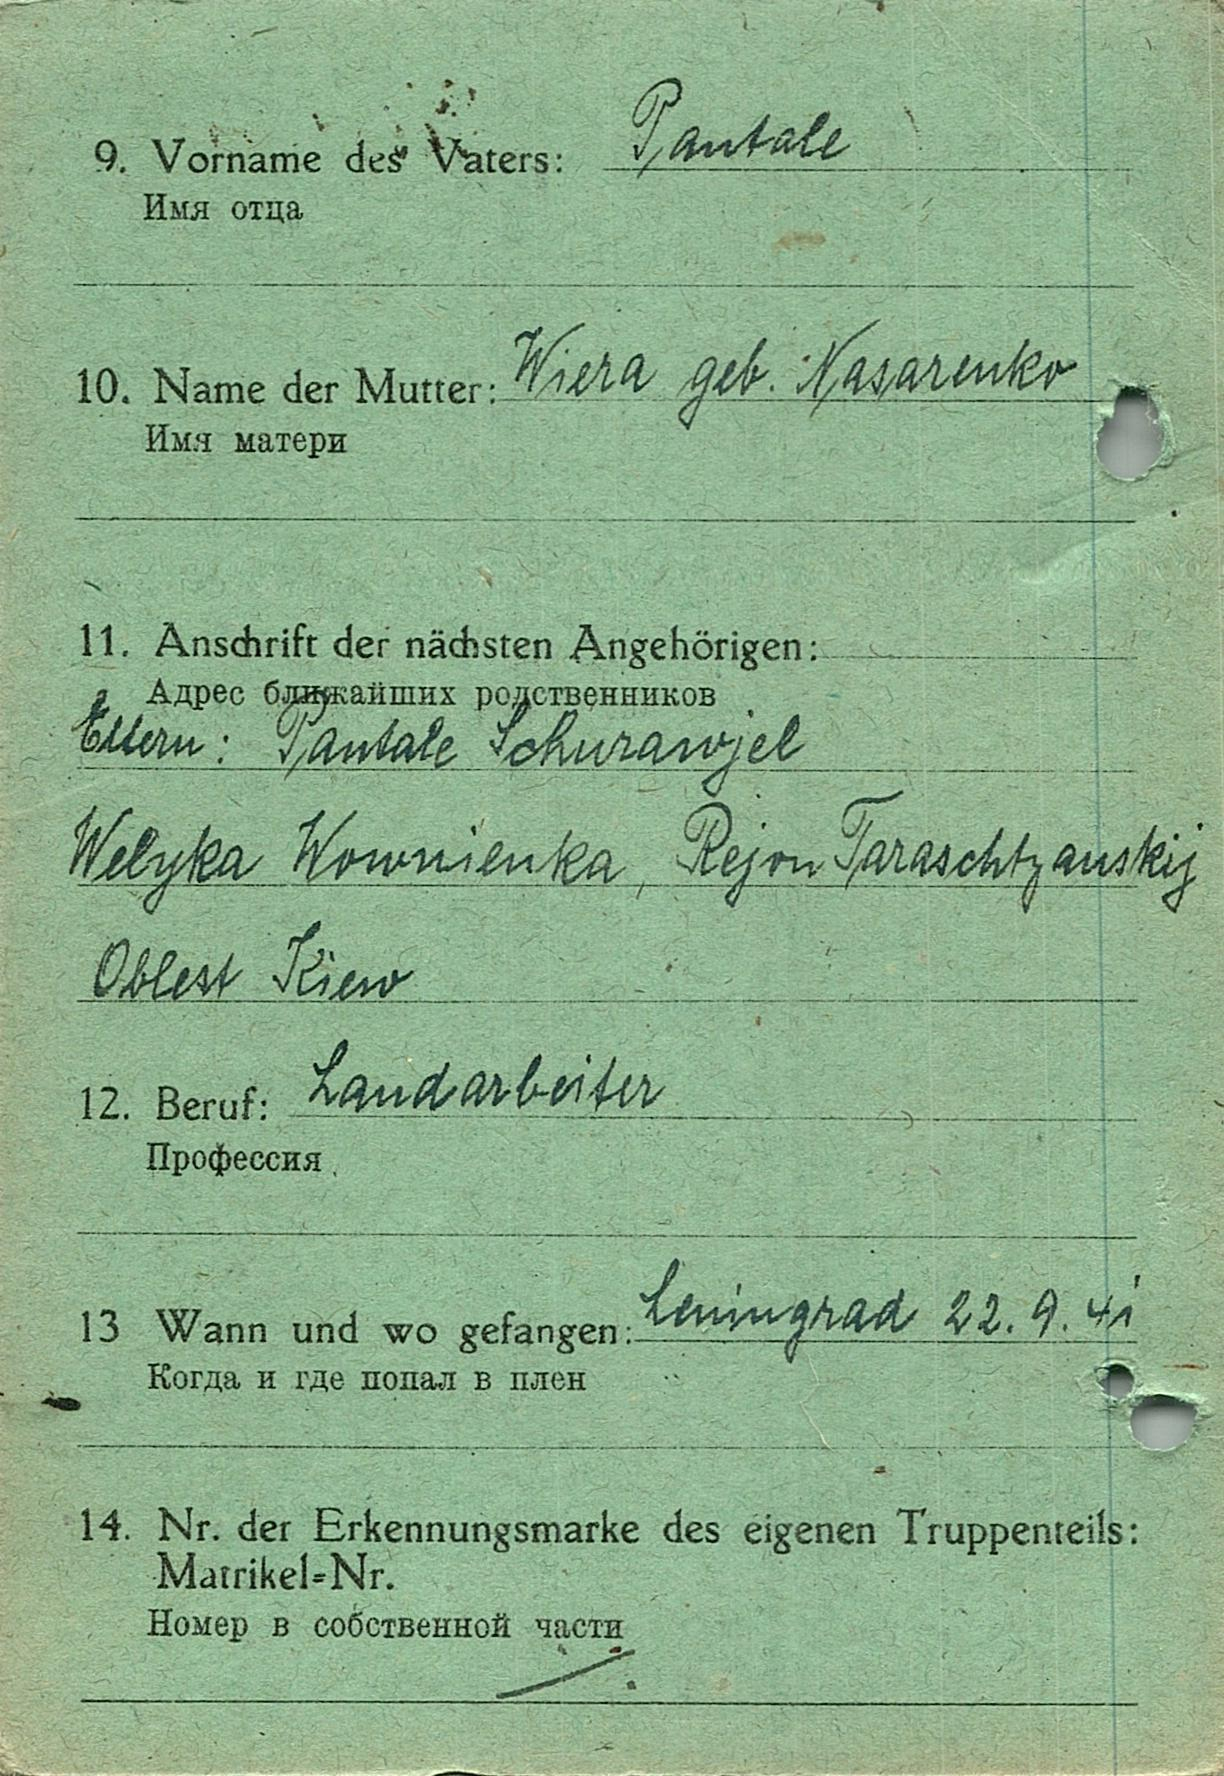 9. Vorname des Vaters: Pantale
Имя отца
10. Name der Mutter: Wiera geb. Nasarenko
Имя матери
11. Anschrift der nächsten Angehörigen:
Адрес ближайших родственников
Eltern: Pantale Schurawjel
Welyka Wownienka, Rejon Taraschtzanskij
Oblest Kiew
12. Beruf: Landarbeiter
Профессия
13 Wann und wo gefangen: Leningrad 22. 9. 41
Когда и где попал в плен
14. Nr. der Erkennungsmarke des eigenen Truppenteils:
Matrikel=Nr.
Номер в собственной части